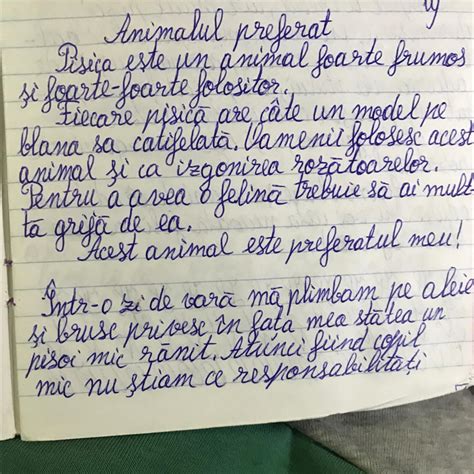 Animalul preferat
Pisica este un animal foarte frumos
și foarte-foarte folositor.
Fiecare pisică are câte un model pe
blana sa catifelată. Oamenii folosesc acest
animal și ca izgonirea rozătoarelor.
Pentru a avea o felină trebuie să ai mul
tă grijă de ea.
Acest animal este preferatul meu!
Într-o zi de vară mă plimbam pe aleie
și brusc privesc în fața mea stătea un
pisoi mic rănit. Atunci fiind copil
mic nu știam ce responsabilități